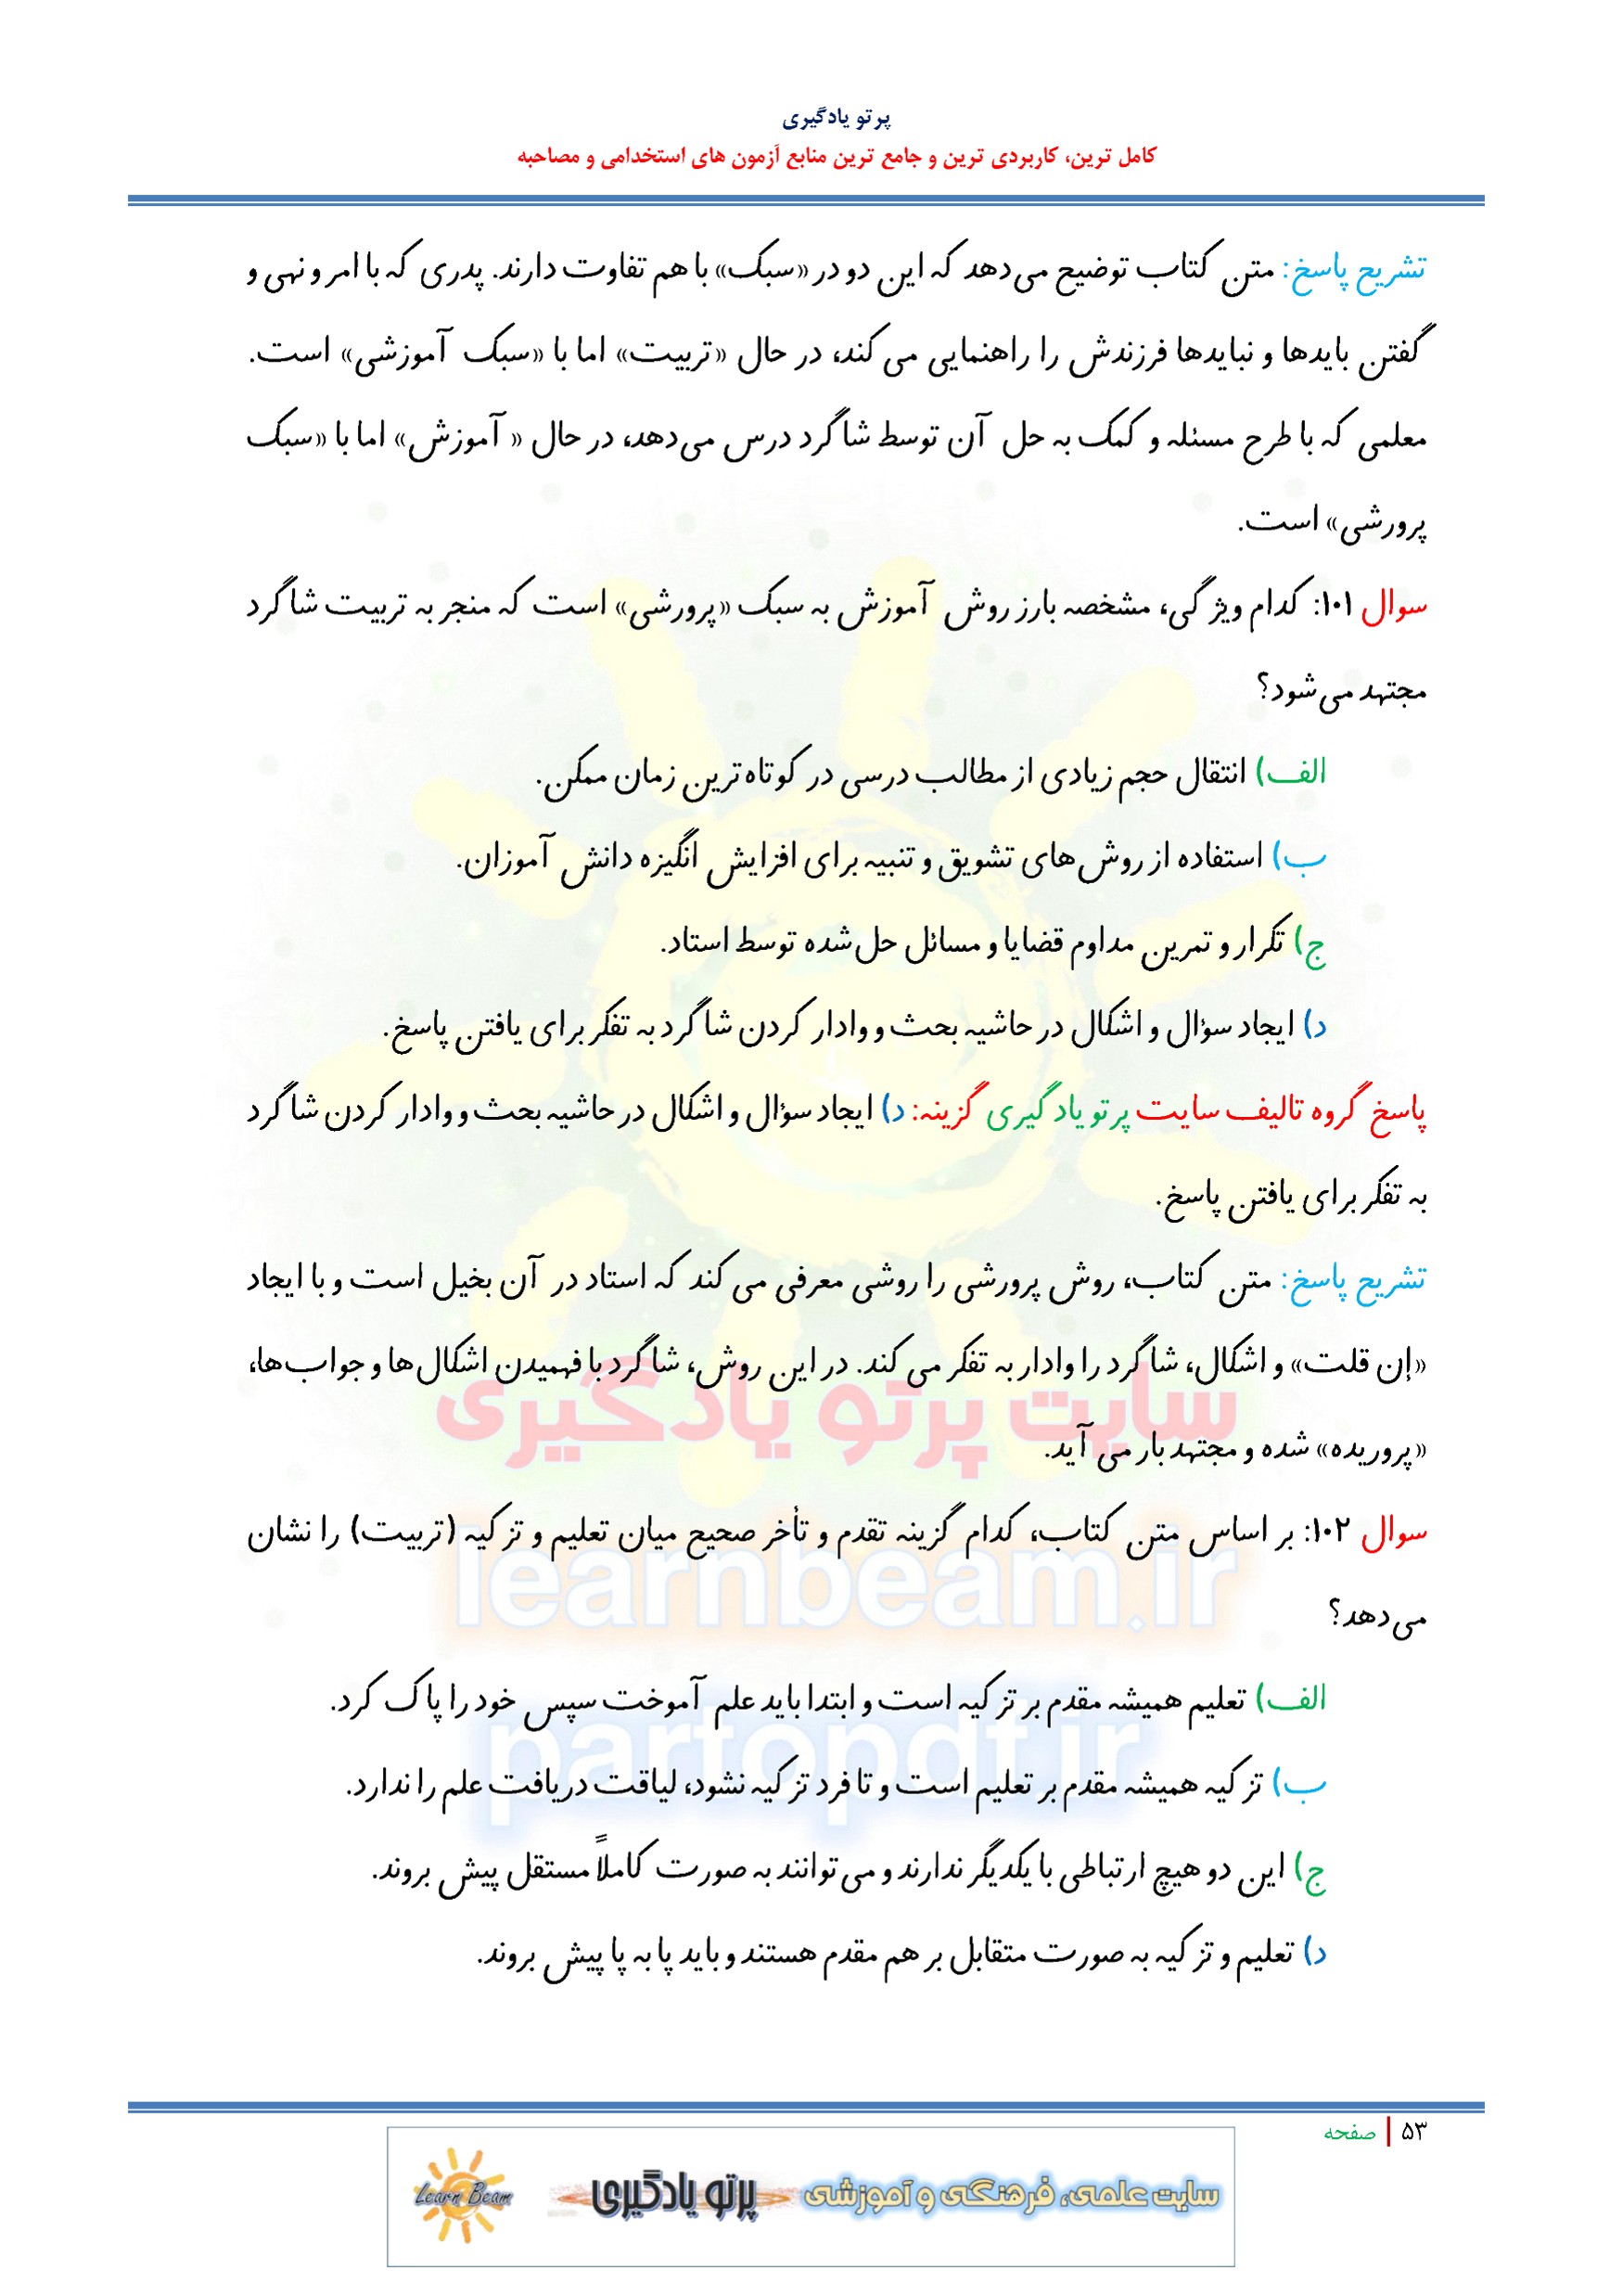 پرتو یادگیری
کامل ترین، کاربردی ترین و جامع ترین منابع آزمون های استخدامی و مصاحبه
تشریح پاسخ: متن کتاب توضیح می‌دهد که این دو در «سبک» با هم تفاوت دارند. پدری که با امر و نهی و
گفتن بایدها و نبایدها فرزندش را راهنمایی می‌کند، در حال «تربیت» اما با «سبک آموزشی» است.
معلمی که با طرح مسئله و کمک به حل آن توسط شاگرد درس می‌دهد، در حال «آموزش» اما با «سبک
پرورشی» است.
سوال ۱۰۱: کدام ویژگی، مشخصه بارز روش آموزش به سبک «پرورشی» است که منجر به تربیت شاگرد
مجتهد می‌شود؟
الف) انتقال حجم زیادی از مطالب درسی در کوتاه‌ترین زمان ممکن.
ب) استفاده از روش‌های تشویق و تنبیه برای افزایش انگیزه دانش آموزان.
ج) تکرار و تمرین مداوم قضایا و مسائل حل‌شده توسط استاد.
د) ایجاد سؤال و اشکال در حاشیه بحث و وادار کردن شاگرد به تفکر برای یافتن پاسخ.
پاسخ گروه تالیف سایت پرتو یادگیری گزینه: د) ایجاد سؤال و اشکال در حاشیه بحث و وادار کردن شاگرد
به تفکر برای یافتن پاسخ.
تشریح پاسخ: متن کتاب، روش پرورشی را روشی معرفی می‌کند که استاد در آن بخیل است و با ایجاد
«إن قلت» و اشکال، شاگرد را وادار به تفکر می‌کند. در این روش، شاگرد با فهمیدن اشکال‌ها و جواب‌ها،
«پروریده» شده و مجتهد بار می‌آید.
سوال ۱۰۲: بر اساس متن کتاب، کدام گزینه تقدم و تأخر صحیح میان تعلیم و تزکیه (تربیت) را نشان
می‌دهد؟
الف) تعلیم همیشه مقدم بر تزکیه است و ابتدا باید علم آموخت سپس خود را پاک کرد.
ب) تزکیه همیشه مقدم بر تعلیم است و تا فرد تزکیه نشود، لیاقت دریافت علم را ندارد.
ج) این دو هیچ ارتباطی با یکدیگر ندارند و می‌توانند به صورت کاملاً مستقل پیش بروند.
د) تعلیم و تزکیه به صورت متقابل بر هم مقدم هستند و باید پا به پا پیش بروند.
سایت پرتو یادگیری
learnbeam.ir
partopdf.ir
۵۳ | صفحه
سایت علمی، فرهنگی و آموزشی پرتو یادگیری Learn Beam